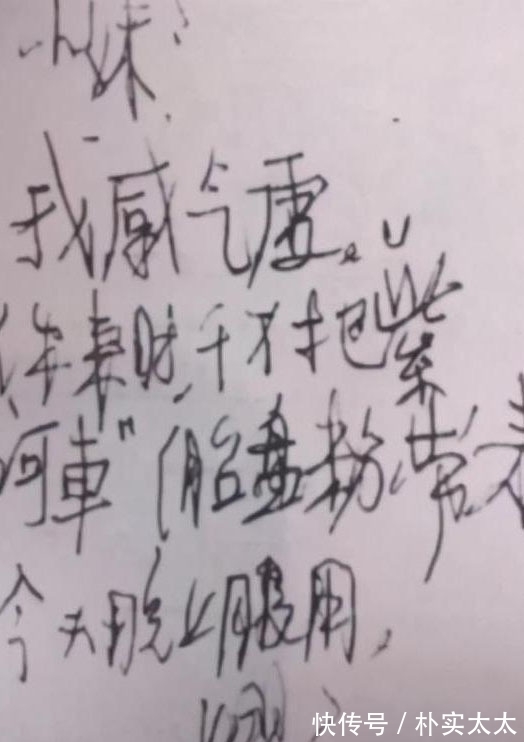 小妹:
我感气虚。
你来时,千万把“紫
河車”(胎盘粉)带来
今天晚上服用,
快传号 / 朴实太太